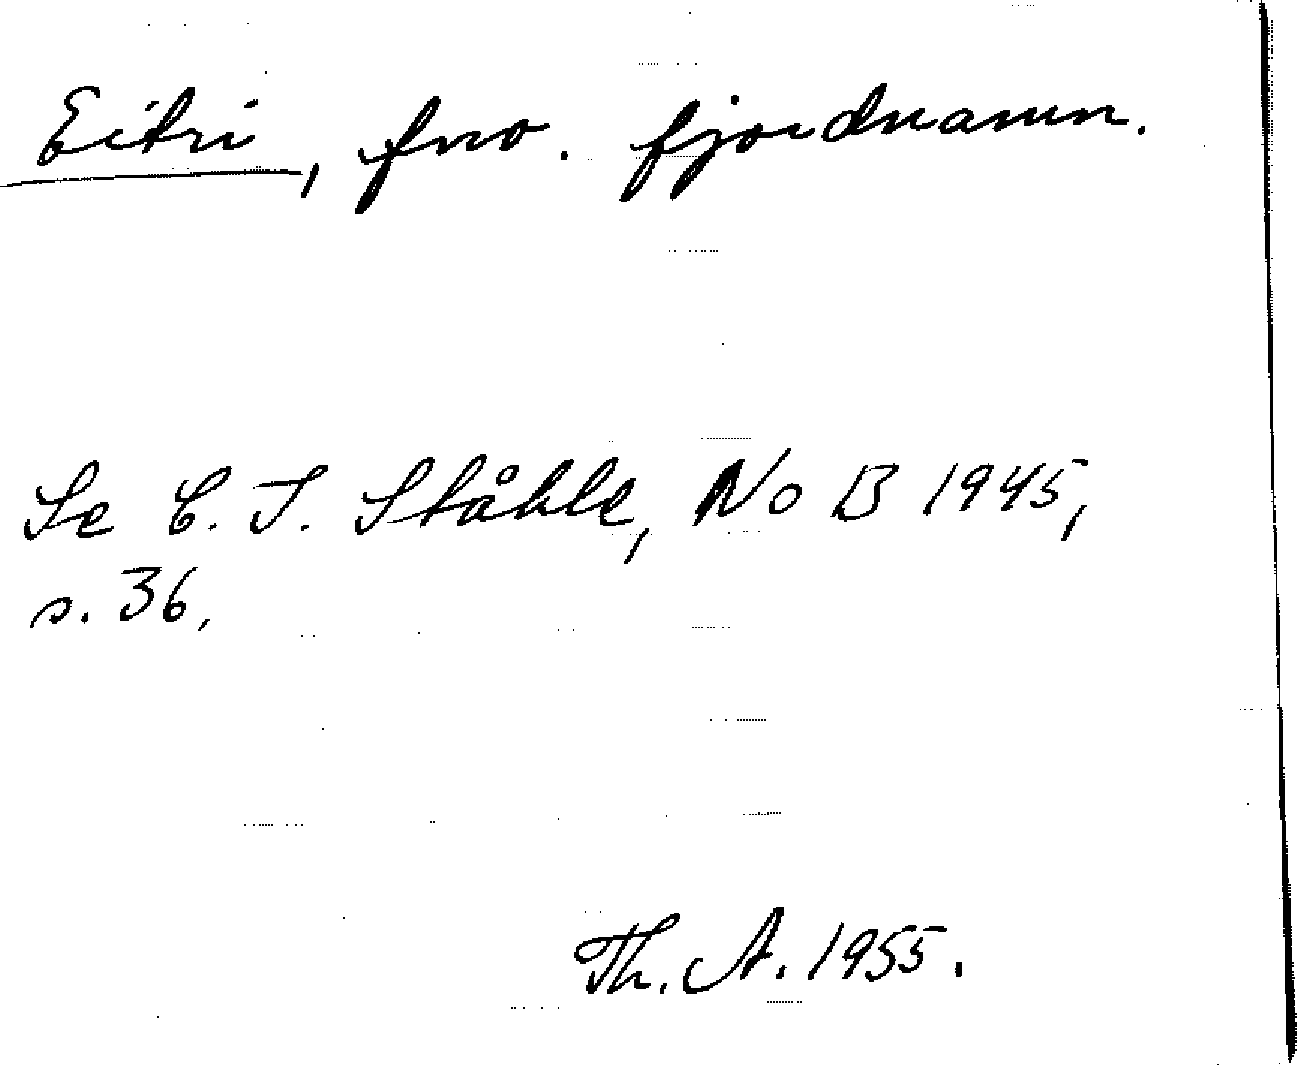 Eitri, fno. fjordnamn.
Se C. I. Ståhle, NoB 1945,
s. 36,
Th. A. 1955.